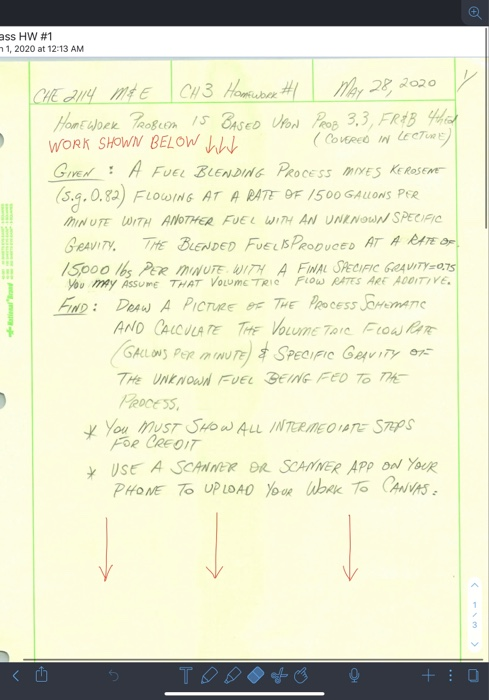 ass HW #1
n 1, 2020 at 12:13 AM
CHE 2114 M&E CH 3 Homework #1 May 28, 2020 1/
Homework Problem is Based Upon Prob 3.3, FR&B 4th ed
WORK SHOWN BELOW ↓↓↓ (Covered in Lecture)
Given: A Fuel Blending Process mixes kerosene
(s.g. 0.82) flowing at a rate of 1500 gallons per
minute with another fuel with an unknown specific
gravity. The blended fuel is produced at a rate of
15,000 lbs per minute with a final specific gravity = 0.75
You may assume that volumetric flow rates are additive.
Find: Draw a picture of the process schematic
and calculate the volumetric flow rate
(gallons per minute) & specific gravity of
the unknown fuel being fed to the
process.
* You must show all intermediate steps
for credit
* Use a scanner or scanner app on your
phone to upload your work to Canvas.
1
/
3